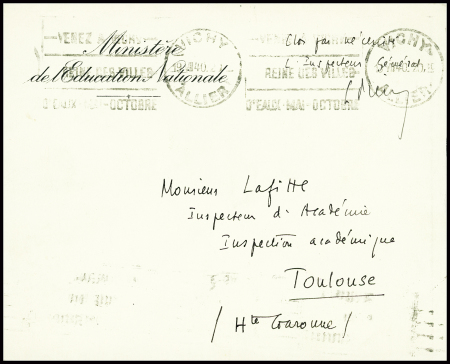 Ministère
de l'Education Nationale
VENEZ A VICHY
REINE DES VILLES
D'EAUX-MAI-OCTOBRE
VICHY
ALLIER
REINE DES VILLES
D'EAUX-MAI-OCTOBRE
VICHY
ALLIER
Clos par nécessité
L'Inspecteur Général
Monsieur Lafitte
Inspecteur d'Académie
Inspection académique
Toulouse
(Hte Garonne)